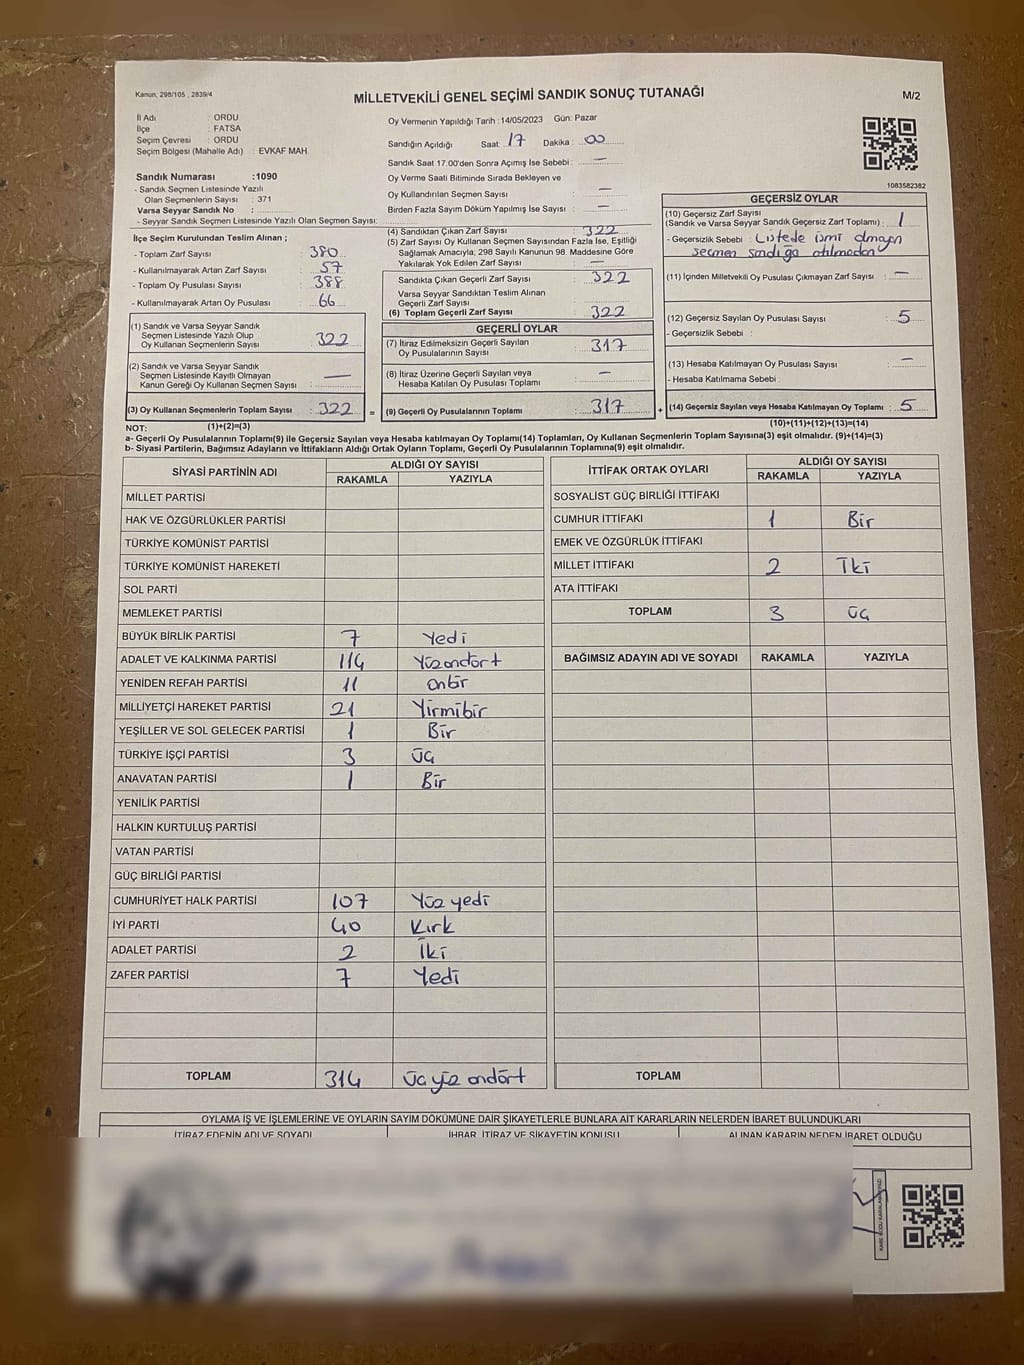 Kanun; 298/105 , 2839/4
MİLLETVEKİLİ GENEL SEÇİMİ SANDIK SONUÇ TUTANAĞI
M/2
İl Adı : ORDU
İlçe : FATSA
Seçim Çevresi : ORDU
Seçim Bölgesi (Mahalle Adı) : EVKAF MAH.
Sandık Numarası :1090
- Sandık Seçmen Listesinde Yazılı
Olan Seçmenlerin Sayısı : 371
Varsa Seyyar Sandık No :
- Seyyar Sandık Seçmen Listesinde Yazılı Olan Seçmen Sayısı:
Oy Vermenin Yapıldığı Tarih :14/05/2023 Gün: Pazar
Sandığın Açıldığı Saat: 17 Dakika : 00
Sandık Saat 17.00'den Sonra Açımış İse Sebebi : —
Oy Verme Saati Bitiminde Sırada Bekleyen ve
Oy Kullandırılan Seçmen Sayısı : —
Birden Fazla Sayım Döküm Yapılmış İse Sayısı : —
1083582382
İlçe Seçim Kurulundan Teslim Alınan ;
- Toplam Zarf Sayısı : 380
- Kullanılmayarak Artan Zarf Sayısı : 57
- Toplam Oy Pusulası Sayısı : 388
- Kullanılmayarak Artan Oy Pusulası : 66
(1) Sandık ve Varsa Seyyar Sandık
Seçmen Listesinde Yazılı Olup
Oy Kullanan Seçmenlerin Sayısı : 322
(2) Sandık ve Varsa Seyyar Sandık
Seçmen Listesinde Kayıtlı Olmayan
Kanun Gereği Oy Kullanan Seçmen Sayısı : —
(3) Oy Kullanan Seçmenlerin Toplam Sayısı : 322 =
(1)+(2)=(3)
(4) Sandıktan Çıkan Zarf Sayısı : 322
(5) Zarf Sayısı Oy Kullanan Seçmen Sayısından Fazla İse, Eşitliği
Sağlamak Amacıyla; 298 Sayılı Kanunun 98. Maddesine Göre
Yakılarak Yok Edilen Zarf Sayısı : —
Sandıkta Çıkan Geçerli Zarf Sayısı : 322
Varsa Seyyar Sandıktan Teslim Alınan
Geçerli Zarf Sayısı :
(6) Toplam Geçerli Zarf Sayısı : 322
GEÇERLİ OYLAR
(7) İtiraz Edilmeksizin Geçerli Sayılan
Oy Pusulalarının Sayısı : 317
(8) İtiraz Üzerine Geçerli Sayılan veya
Hesaba Katılan Oy Pusulası Toplamı : —
(9) Geçerli Oy Pusulalarının Toplamı : 317 +
GEÇERSİZ OYLAR
(10) Geçersiz Zarf Sayısı
(Sandık ve Varsa Seyyar Sandık Geçersiz Zarf Toplamı) : 1
- Geçersizlik Sebebi : Listede ismi olmayan
seçmen sandığa atılmadan
(11) İçinden Milletvekili Oy Pusulası Çıkmayan Zarf Sayısı : —
(12) Geçersiz Sayılan Oy Pusulası Sayısı : 5
- Geçersizlik Sebebi :
(13) Hesaba Katılmayan Oy Pusulası Sayısı : —
- Hesaba Katılmama Sebebi :
(14) Geçersiz Sayılan veya Hesaba Katılmayan Oy Toplamı : 5
(10)+(11)+(12)+(13)=(14)
NOT:
a- Geçerli Oy Pusulalarının Toplamı(9) ile Geçersiz Sayılan veya Hesaba katılmayan Oy Toplamı(14) Toplamları, Oy Kullanan Seçmenlerin Toplam Sayısına(3) eşit olmalıdır. (9)+(14)=(3)
b- Siyasi Partilerin, Bağımsız Adayların ve İttifakların Aldığı Ortak Oyların Toplamı, Geçerli Oy Pusulalarının Toplamına(9) eşit olmalıdır.
SİYASİ PARTİNİN ADI ALDIĞI OY SAYISI
RAKAMLA YAZIYLA
MİLLET PARTİSİ
HAK VE ÖZGÜRLÜKLER PARTİSİ
TÜRKİYE KOMÜNİST PARTİSİ
TÜRKİYE KOMÜNİST HAREKETİ
SOL PARTİ
MEMLEKET PARTİSİ
BÜYÜK BİRLİK PARTİSİ 7 Yedi
ADALET VE KALKINMA PARTİSİ 114 Yüzondört
YENİDEN REFAH PARTİSİ 11 onbir
MİLLİYETÇİ HAREKET PARTİSİ 21 Yirmibir
YEŞİLLER VE SOL GELECEK PARTİSİ 1 Bir
TÜRKİYE İŞÇİ PARTİSİ 3 Üç
ANAVATAN PARTİSİ 1 Bir
YENİLİK PARTİSİ
HALKIN KURTULUŞ PARTİSİ
VATAN PARTİSİ
GÜÇ BİRLİĞİ PARTİSİ
CUMHURİYET HALK PARTİSİ 107 Yüz yedi
İYİ PARTİ 40 Kırk
ADALET PARTİSİ 2 İki
ZAFER PARTİSİ 7 Yedi
TOPLAM 314 Üçyüz ondört
İTTİFAK ORTAK OYLARI ALDIĞI OY SAYISI
RAKAMLA YAZIYLA
SOSYALİST GÜÇ BİRLİĞİ İTTİFAKI
CUMHUR İTTİFAKI 1 Bir
EMEK VE ÖZGÜRLÜK İTTİFAKI
MİLLET İTTİFAKI 2 İki
ATA İTTİFAKI
TOPLAM 3 Üç
BAĞIMSIZ ADAYIN ADI VE SOYADI RAKAMLA YAZIYLA
TOPLAM
OYLAMA İŞ VE İŞLEMLERİNE VE OYLARIN SAYIM DÖKÜMÜNE DAİR ŞİKAYETLERLE BUNLARA AİT KARARLARIN NELERDEN İBARET BULUNDUKLARI
İTİRAZ EDENİN ADI VE SOYADI İHBAR, İTİRAZ VE ŞİKAYETİN KONUSU ALINAN KARARIN NEDEN İBARET OLDUĞU